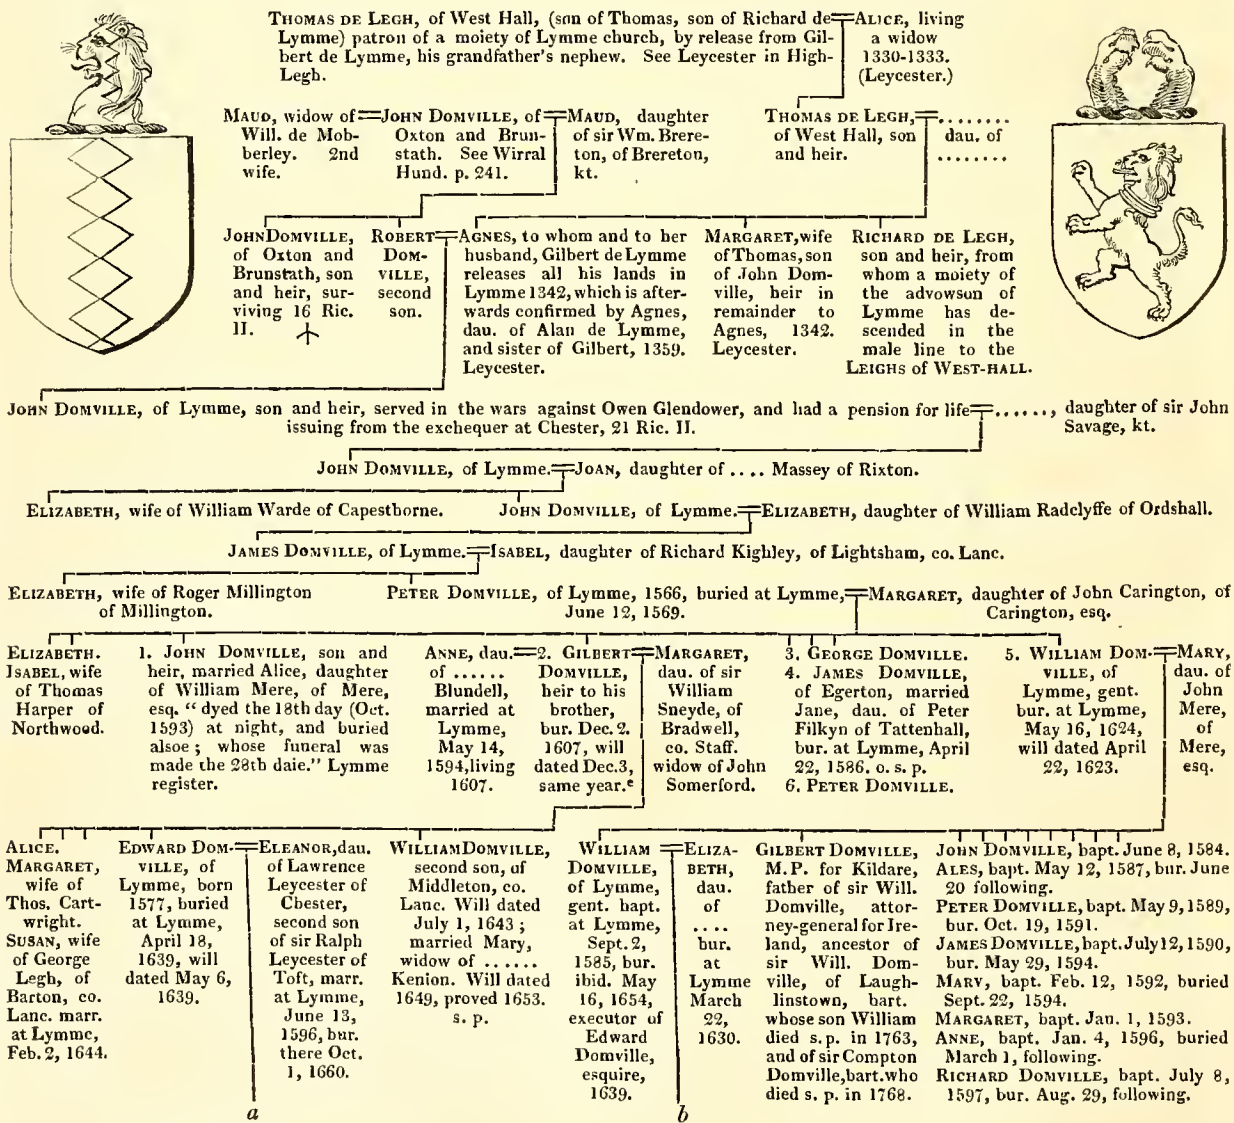 THOMAS DE LEGH, of West Hall, (son of Thomas, son of Richard de
Lymme) patron of a moiety of Lymme church, by release from Gil-
bert de Lymme, his grandfather's nephew. See Leycester in High-
Legh.
ALICE, living
a widow
1330-1333.
(Leycester.)
MAUD, widow of
Will. de Mob-
berley. 2nd
wife.
JOHN DOMVILLE, of
Oxton and Brun-
stath. See Wirral
Hund. p. 241.
MAUD, daughter
of sir Wm. Brere-
ton, of Brereton,
kt.
THOMAS DE LEGH,
of West Hall, son
and heir.
........
dau. of
........
JOHN DOMVILLE,
of Oxton and
Brunstath, son
and heir, sur-
viving 16 Ric.
II.
ROBERT
DOM-
VILLE,
second
son.
AGNES, to whom and to her
husband, Gilbert de Lymme
releases all his lands in
Lymme 1342, which is after-
wards confirmed by Agnes,
dau. of Alan de Lymme,
and sister of Gilbert, 1359.
Leycester.
MARGARET, wife
of Thomas, son
of John Dom-
ville, heir in
remainder to
Agnes, 1342.
Leycester.
RICHARD DE LEGH,
son and heir, from
whom a moiety of
the advowson of
Lymme has de-
scended in the
male line to the
LEIGHS of WEST-HALL.
JOHN DOMVILLE, of Lymme, son and heir, served in the wars against Owen Glendower, and had a pension for life
issuing from the exchequer at Chester, 21 Ric. II.
......, daughter of sir John
Savage, kt.
JOHN DOMVILLE, of Lymme. JOAN, daughter of .... Massey of Rixton.
ELIZABETH, wife of William Warde of Capesthorne. JOHN DOMVILLE, of Lymme. ELIZABETH, daughter of William Radclyffe of Ordshall.
JAMES DOMVILLE, of Lymme. ISABEL, daughter of Richard Kighley, of Lightsham, co. Lanc.
ELIZABETH, wife of Roger Millington
of Millington.
PETER DOMVILLE, of Lymme, 1566, buried at Lymme,
June 12, 1569.
MARGARET, daughter of John Carington, of
Carington, esq.
ELIZABETH.
ISABEL, wife
of Thomas
Harper of
Northwood.
1. JOHN DOMVILLE, son and
heir, married Alice, daughter
of William Mere, of Mere,
esq. "dyed the 18th day (Oct.
1593) at night, and buried
alsoe; whose funeral was
made the 28th daie." Lymme
register.
ANNE, dau.
of ......
Blundell,
married at
Lymme,
May 14,
1594, living
1607.
2. GILBERT
DOMVILLE,
heir to his
brother,
bur. Dec. 2.
1607, will
dated Dec. 3,
same year.e
MARGARET,
dau. of sir
William
Sneyde, of
Bradwell,
co. Staff.
widow of John
Somerford.
3. GEORGE DOMVILLE.
4. JAMES DOMVILLE,
of Egerton, married
Jane, dau. of Peter
Filkyn of Tattenhall,
bur. at Lymme, April
22, 1586. o. s. p.
6. PETER DOMVILLE.
5. WILLIAM DOM-
VILLE, of
Lymme, gent.
bur. at Lymme,
May 16, 1624,
will dated April
22, 1623.
MARY,
dau. of
John
Mere,
of
Mere,
esq.
ALICE.
MARGARET,
wife of
Thos. Cart-
wright.
SUSAN, wife
of George
Legh, of
Barton, co.
Lanc. marr.
at Lymme,
Feb. 2, 1644.
EDWARD DOM-
VILLE, of
Lymme, born
1577, buried
at Lymme,
April 18,
1639, will
dated May 6,
1639.
ELEANOR, dau.
of Lawrence
Leycester of
Chester,
second son
of sir Ralph
Leycester of
Toft, marr.
at Lymme,
June 13,
1596, bur.
there Oct.
1, 1660.
WILLIAM DOMVILLE,
second son, of
Middleton, co.
Lanc. Will dated
July 1, 1643;
married Mary,
widow of ......
Kenion. Will dated
1649, proved 1653.
s. p.
WILLIAM
DOMVILLE,
of Lymme,
gent. bapt.
at Lymme,
Sept. 2,
1585, bur.
ibid. May
16, 1654,
executor of
Edward
Domville,
esquire,
1639.
ELIZA-
BETH,
dau.
of
....
bur.
at
Lymme
March
22,
1630.
GILBERT DOMVILLE,
M.P. for Kildare,
father of sir Will.
Domville, attor-
ney-general for Ire-
land, ancestor of
sir Will. Dom-
ville, of Laugh-
linstown, bart.
whose son William
died s. p. in 1763,
and of sir Compton
Domville, bart. who
died s. p. in 1768.
JOHN DOMVILLE, bapt. June 8, 1584.
ALES, bapt. May 12, 1587, bur. June
20 following.
PETER DOMVILLE, bapt. May 9, 1589,
bur. Oct. 19, 1591.
JAMES DOMVILLE, bapt. July 12, 1590,
bur. May 29, 1594.
MARY, bapt. Feb. 12, 1592, buried
Sept. 22, 1594.
MARGARET, bapt. Jan. 1, 1593.
ANNE, bapt. Jan. 4, 1596, buried
March 1, following.
RICHARD DOMVILLE, bapt. July 8,
1597, bur. Aug. 29, following.
a
b